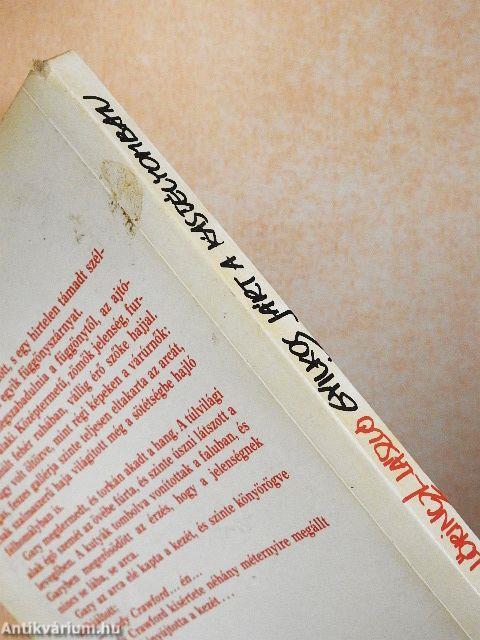 LŐRINCZ L. LÁSZLÓ GYILKOS JÁRT A KASTÉLYOMBAN
egy hirtelen támadt szél-
egyik függönyszárnyat.
a függönytől, az ajtó-
Középtermetű, zömök jelenség fur-
fehér ruhában, vállig érő szőke hajjal
volt öltözve, mint régi képeken a várúrnők:
gallérja szinte teljesen eltakarta az arcát
haja világított még a sötétségbe hajló
is.
Gary megdermedt, és torkán akadt a hang. A túlvilági
alak égő szemét az övébe fúrta, és szinte úszni látszott a
levegőben. A kutyák tombolva vonítottak a faluban, és
Garyben megerősödött az érzés, hogy a jelenségnek
nincs se lába, se arca.
Gary az arca elé kapta a kezét, és szinte könyörögve
Crawford... én...
Crawford kísértete néhány méternyire megállt
nyújtotta a kezét....
Antikvárium.hu